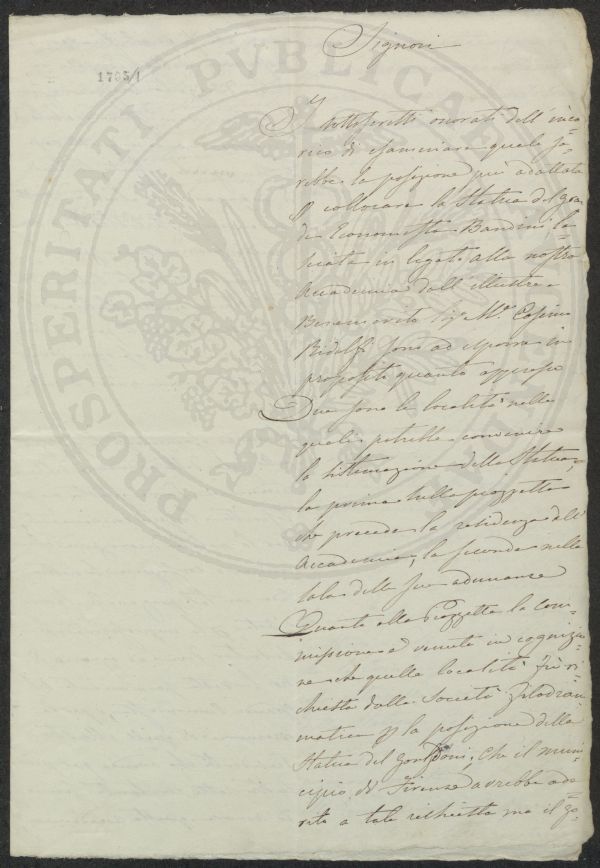 Signori
1795/1
I sottoscritti onorati dell'inca=
rico di esaminare quale sa=
rebbe la posizione più adattata
p collocare la Statua del gran
de Economista Bandini la=
sciata in legato alla nostra
Accademia dall'illustre
Benemerito Sig. M.se Cosimo
Ridolfi sono ad esporre in
proposito quanto appresso
Due sono le località nelle
quali potrebbe convenire
la sistemazione della Statua,
la prima sulla piazzetta
che precede la residenza dell'
Accademia, la seconda nella
sala delle sue adunanze
Quanto alla Piazzetta la com=
missione è venuta in cognizio=
ne che quella località fu ri=
chiesta dalla Società Filodram
matica p la posizione della
Statua del Goldoni, che il muni=
cipio di Firenze avrebbe ade=
rito a tale richiesta ma il go=
PROSPERITATI PVBLICAE